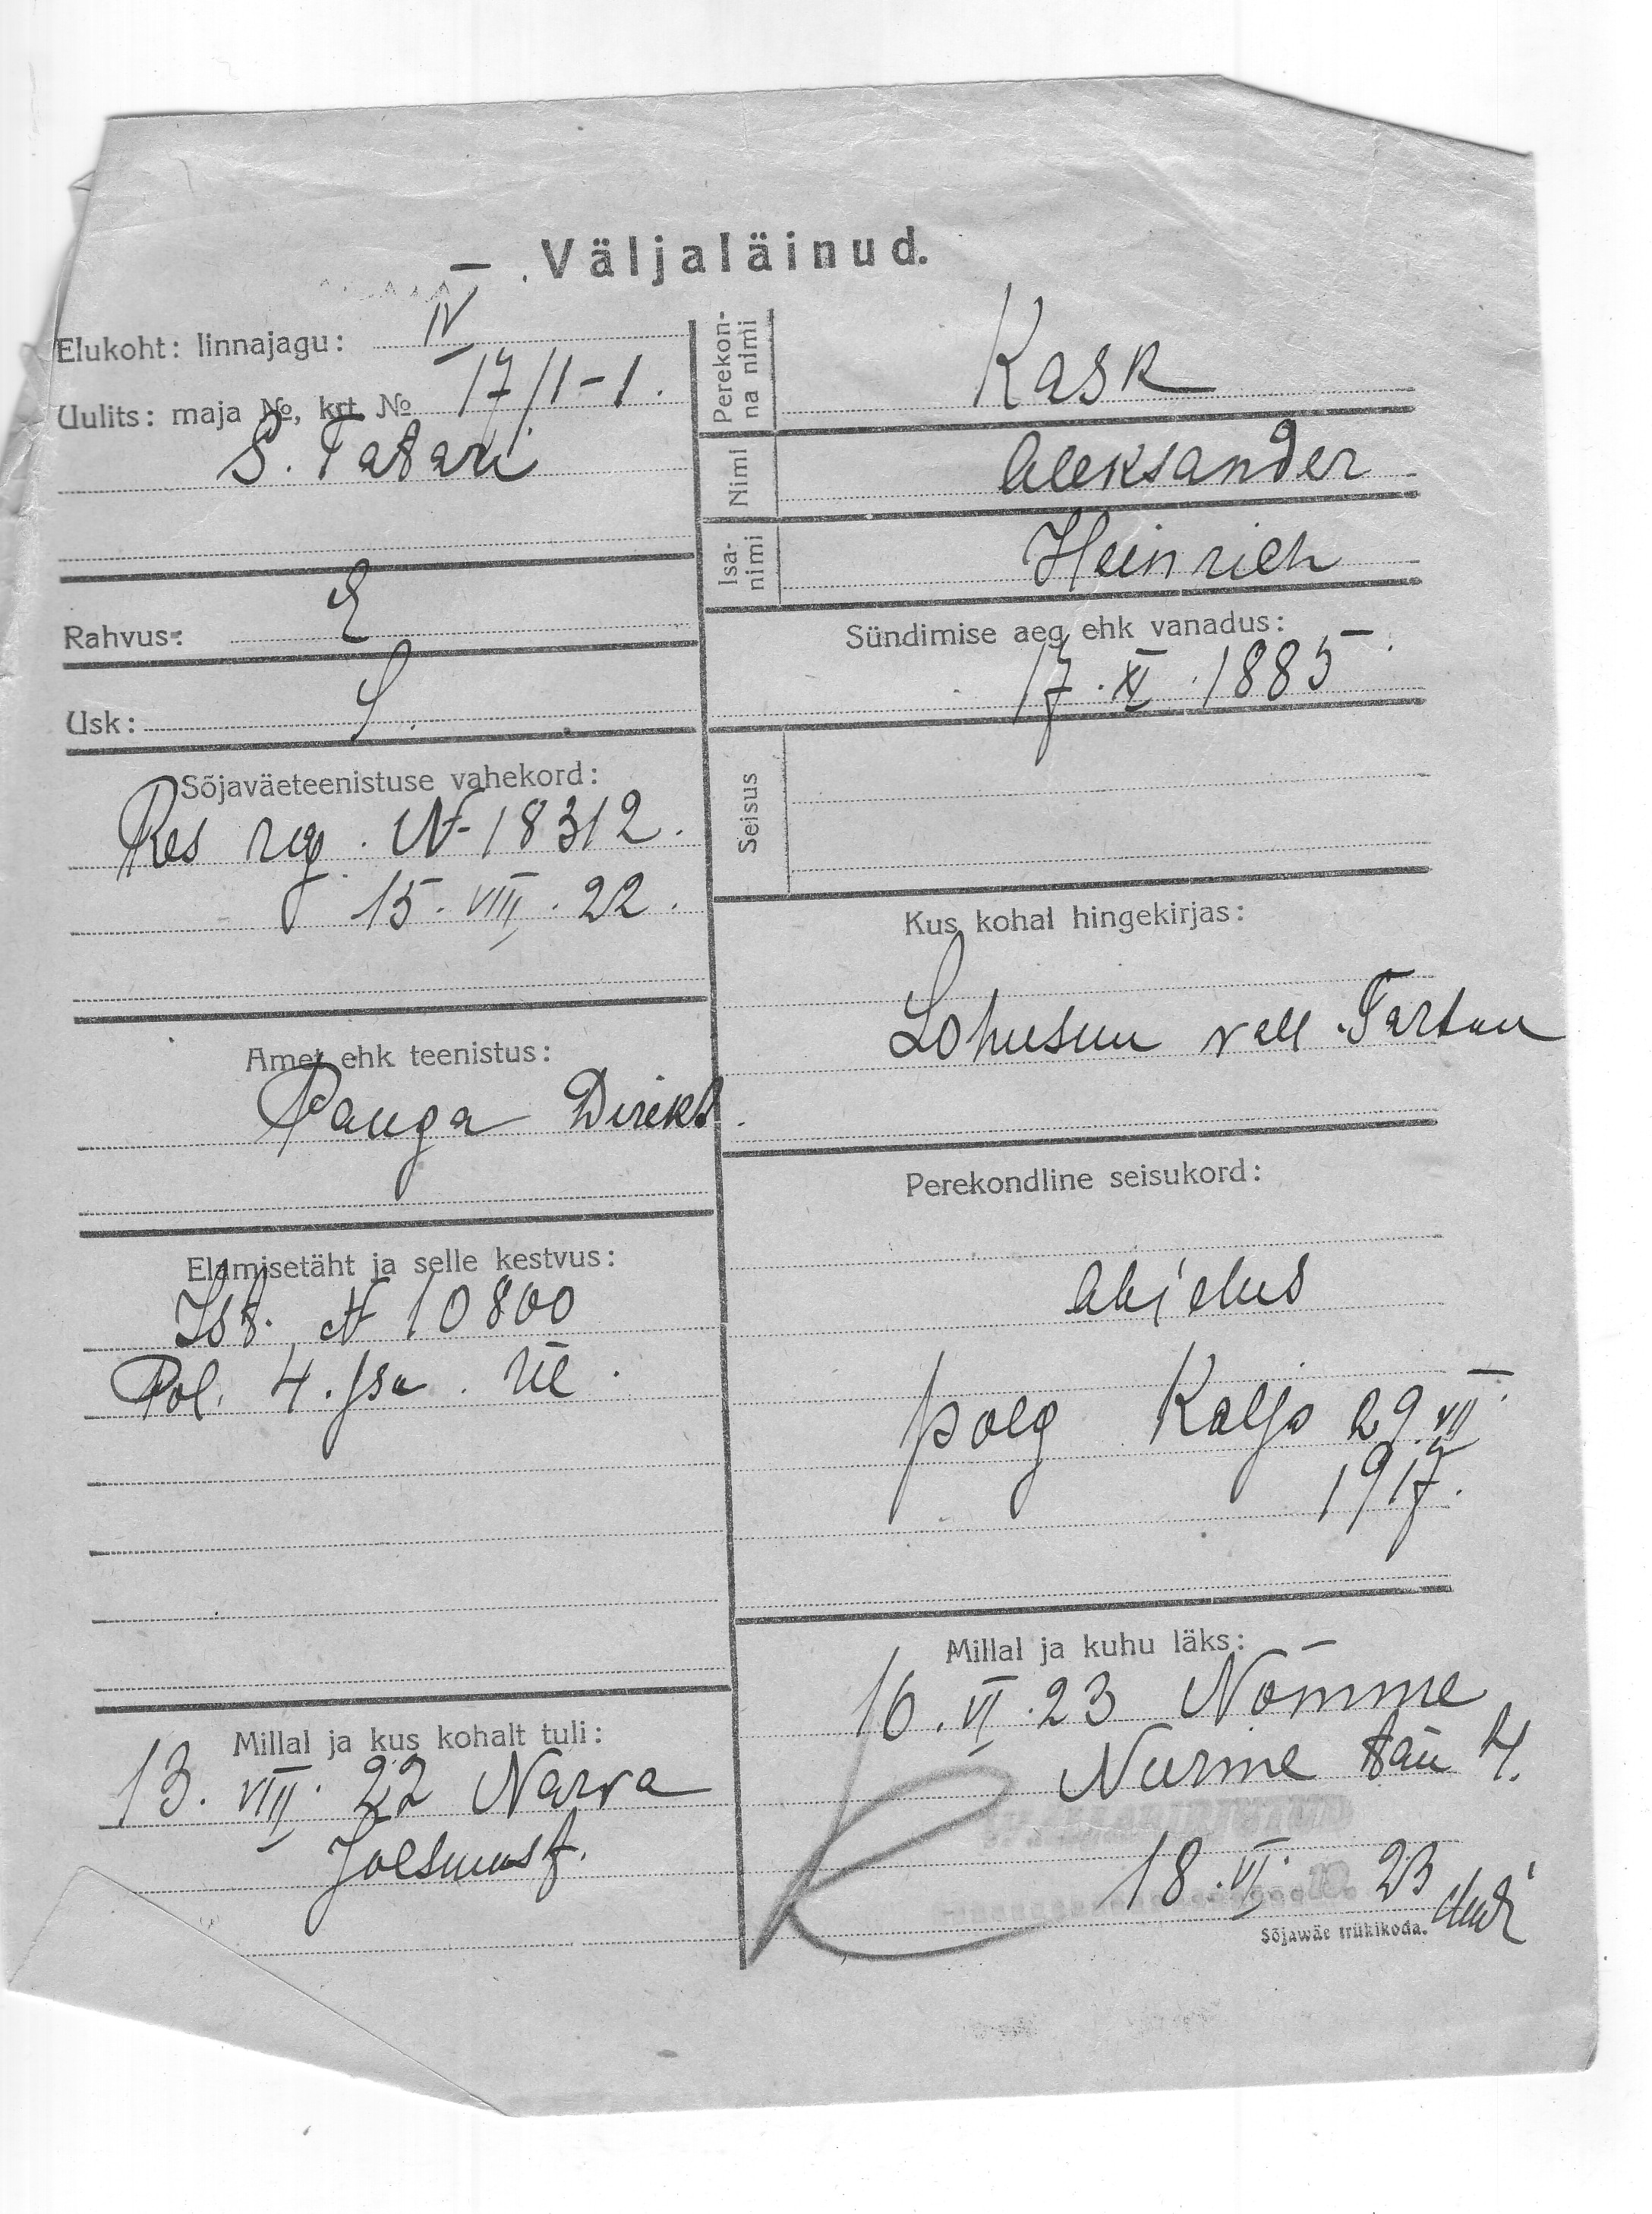 Väljaläinud.
Elukoht: linnajagu: IV
Uulits: maja №, krt. № 17/1-1.
S. Tatari
Rahvus: E
Usk: L.
Sõjaväeteenistuse vahekord:
Res reg. N-18312.
15. VIII. 22.
Amet ehk teenistus:
Panga Direkt.
Elamisetäht ja selle kestvus:
Ist. N 10800
Pol. 4. jsk.
Millal ja kus kohalt tuli:
13. VIII. 22 Narva
Joesuust.
Perekon-
na nimi
Kask
Nimi
Aleksander
Isa-
nimi
Heinrich
Sündimise aeg ehk vanadus:
17. XI. 1885.
Seisus
Kus kohal hingekirjas:
Lohusuu vall. Tartuu
Perekondline seisukord:
abielus
poeg Kaljo 29. VII.
1917.
Millal ja kuhu läks:
16. VI. 23 Nõmme
Nurme tän 4.
18. VI. 23
Sõjawäe trükikoda.